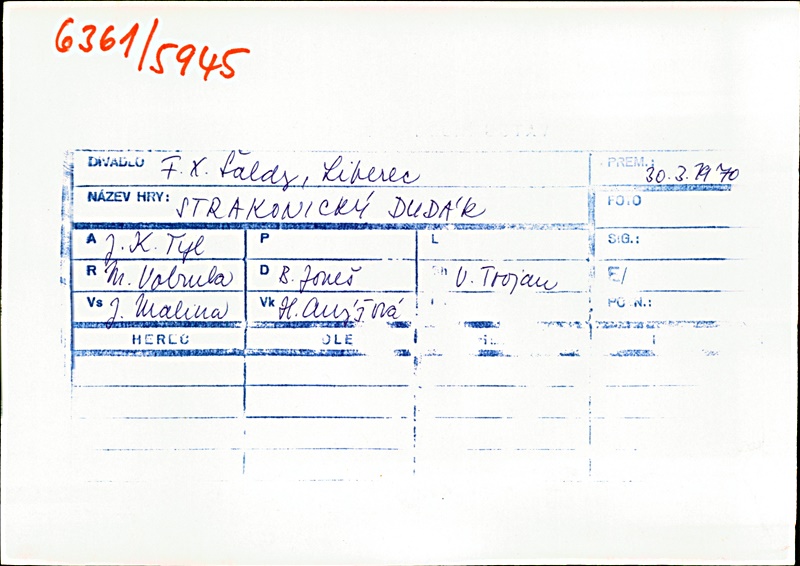 6361/5945
DIVADLO F. X. Šaldy, Liberec PREM.: 30.3.1970
NÁZEV HRY: STRAKONICKÝ DUDÁK FOTO
A J. K. Tyl P L SIG.:
R M. Vobruba D B. Joneš V. Trojan E/
Vs J. Malina Vk H. POZN.:
HEREC